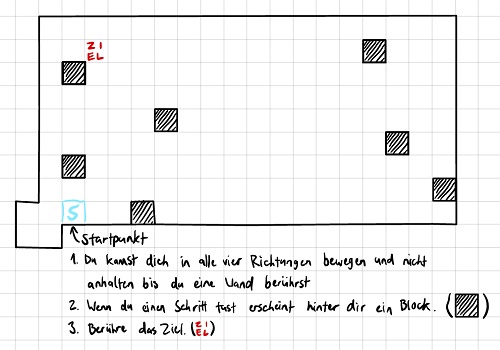 ZI
EL
S
Startpunkt
1. Du kannst dich in alle vier Richtungen bewegen und nicht
anhalten bis du eine Wand berührst
2. Wenn du einen Schritt tust erscheint hinter dir ein Block. ( )
3. Berühre das Ziel. (ZI
EL)